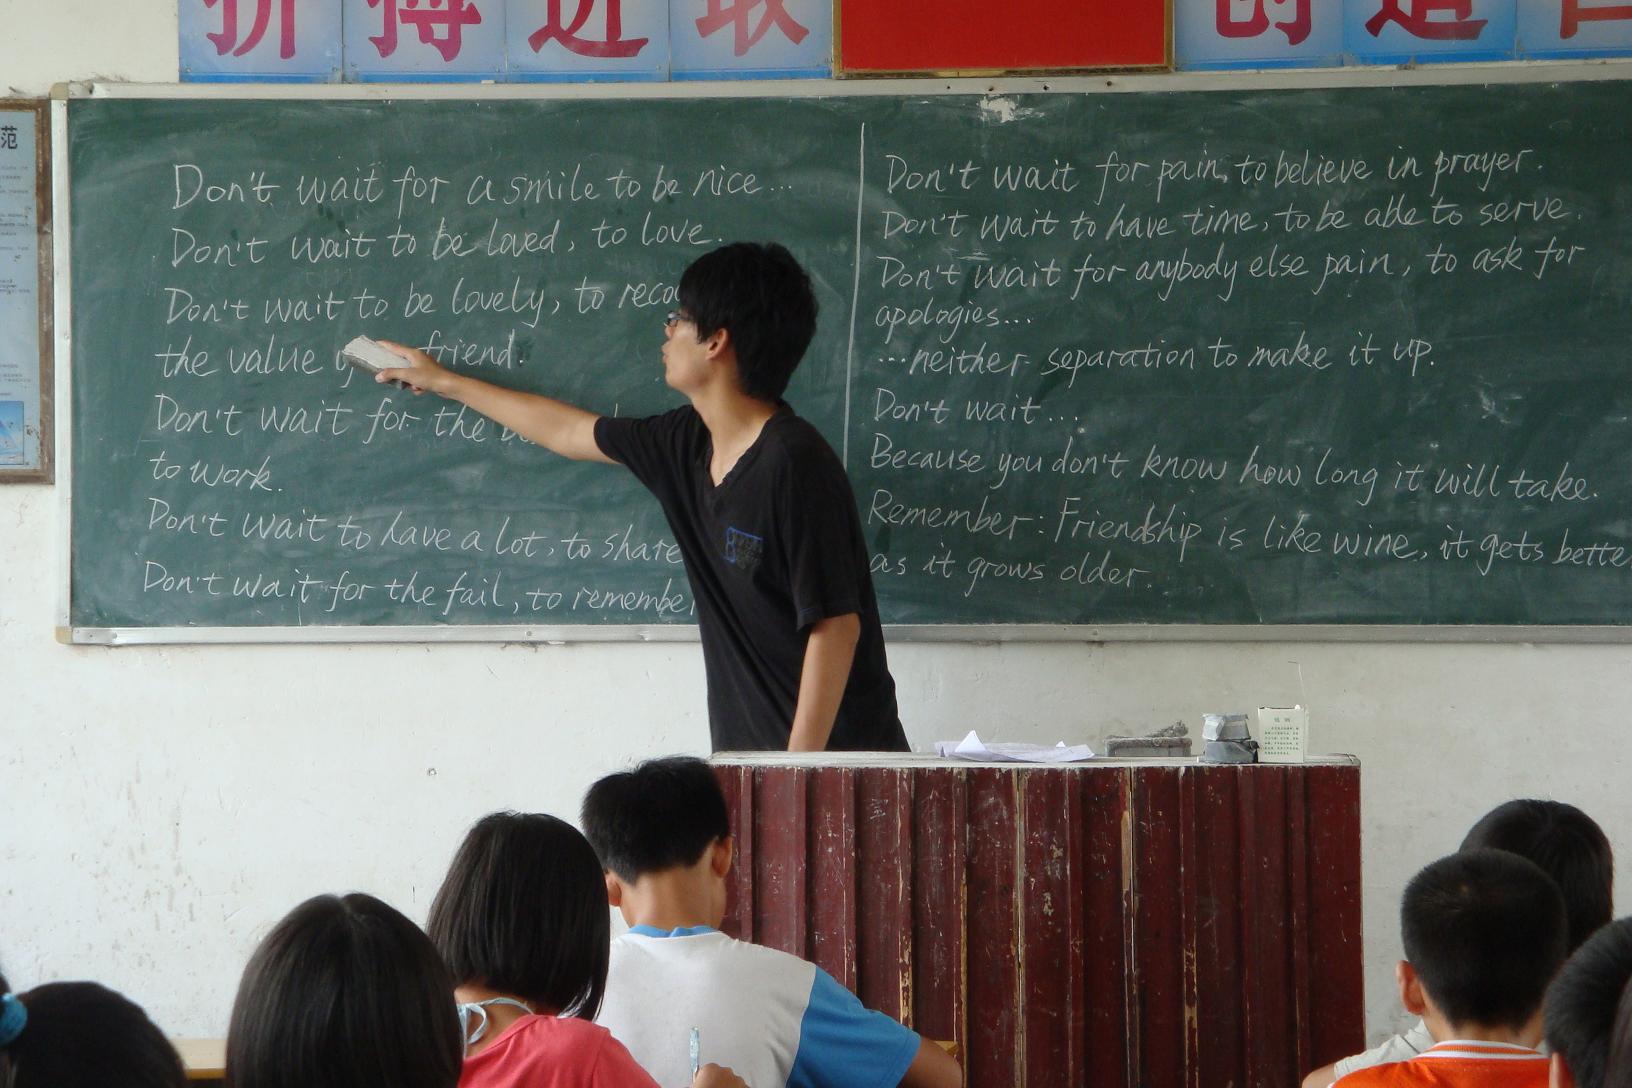 拼搏进取
创造
范
Don't wait for a smile to be nice...
Don't wait to be loved, to love.
Don't wait to be lovely, to
the value friend.
Don't wait for the
to work.
Don't wait to have a lot, to share
Don't wait for the fail, to remember
Don't wait for pain, to believe in prayer.
Don't wait to have time, to be able to serve.
Don't wait for anybody else pain, to ask for
apologies...
...neither separation to make it up.
Don't wait...
Because you don't know how long it will take.
Remember: Friendship is like wine, it gets bette
as it grows older.